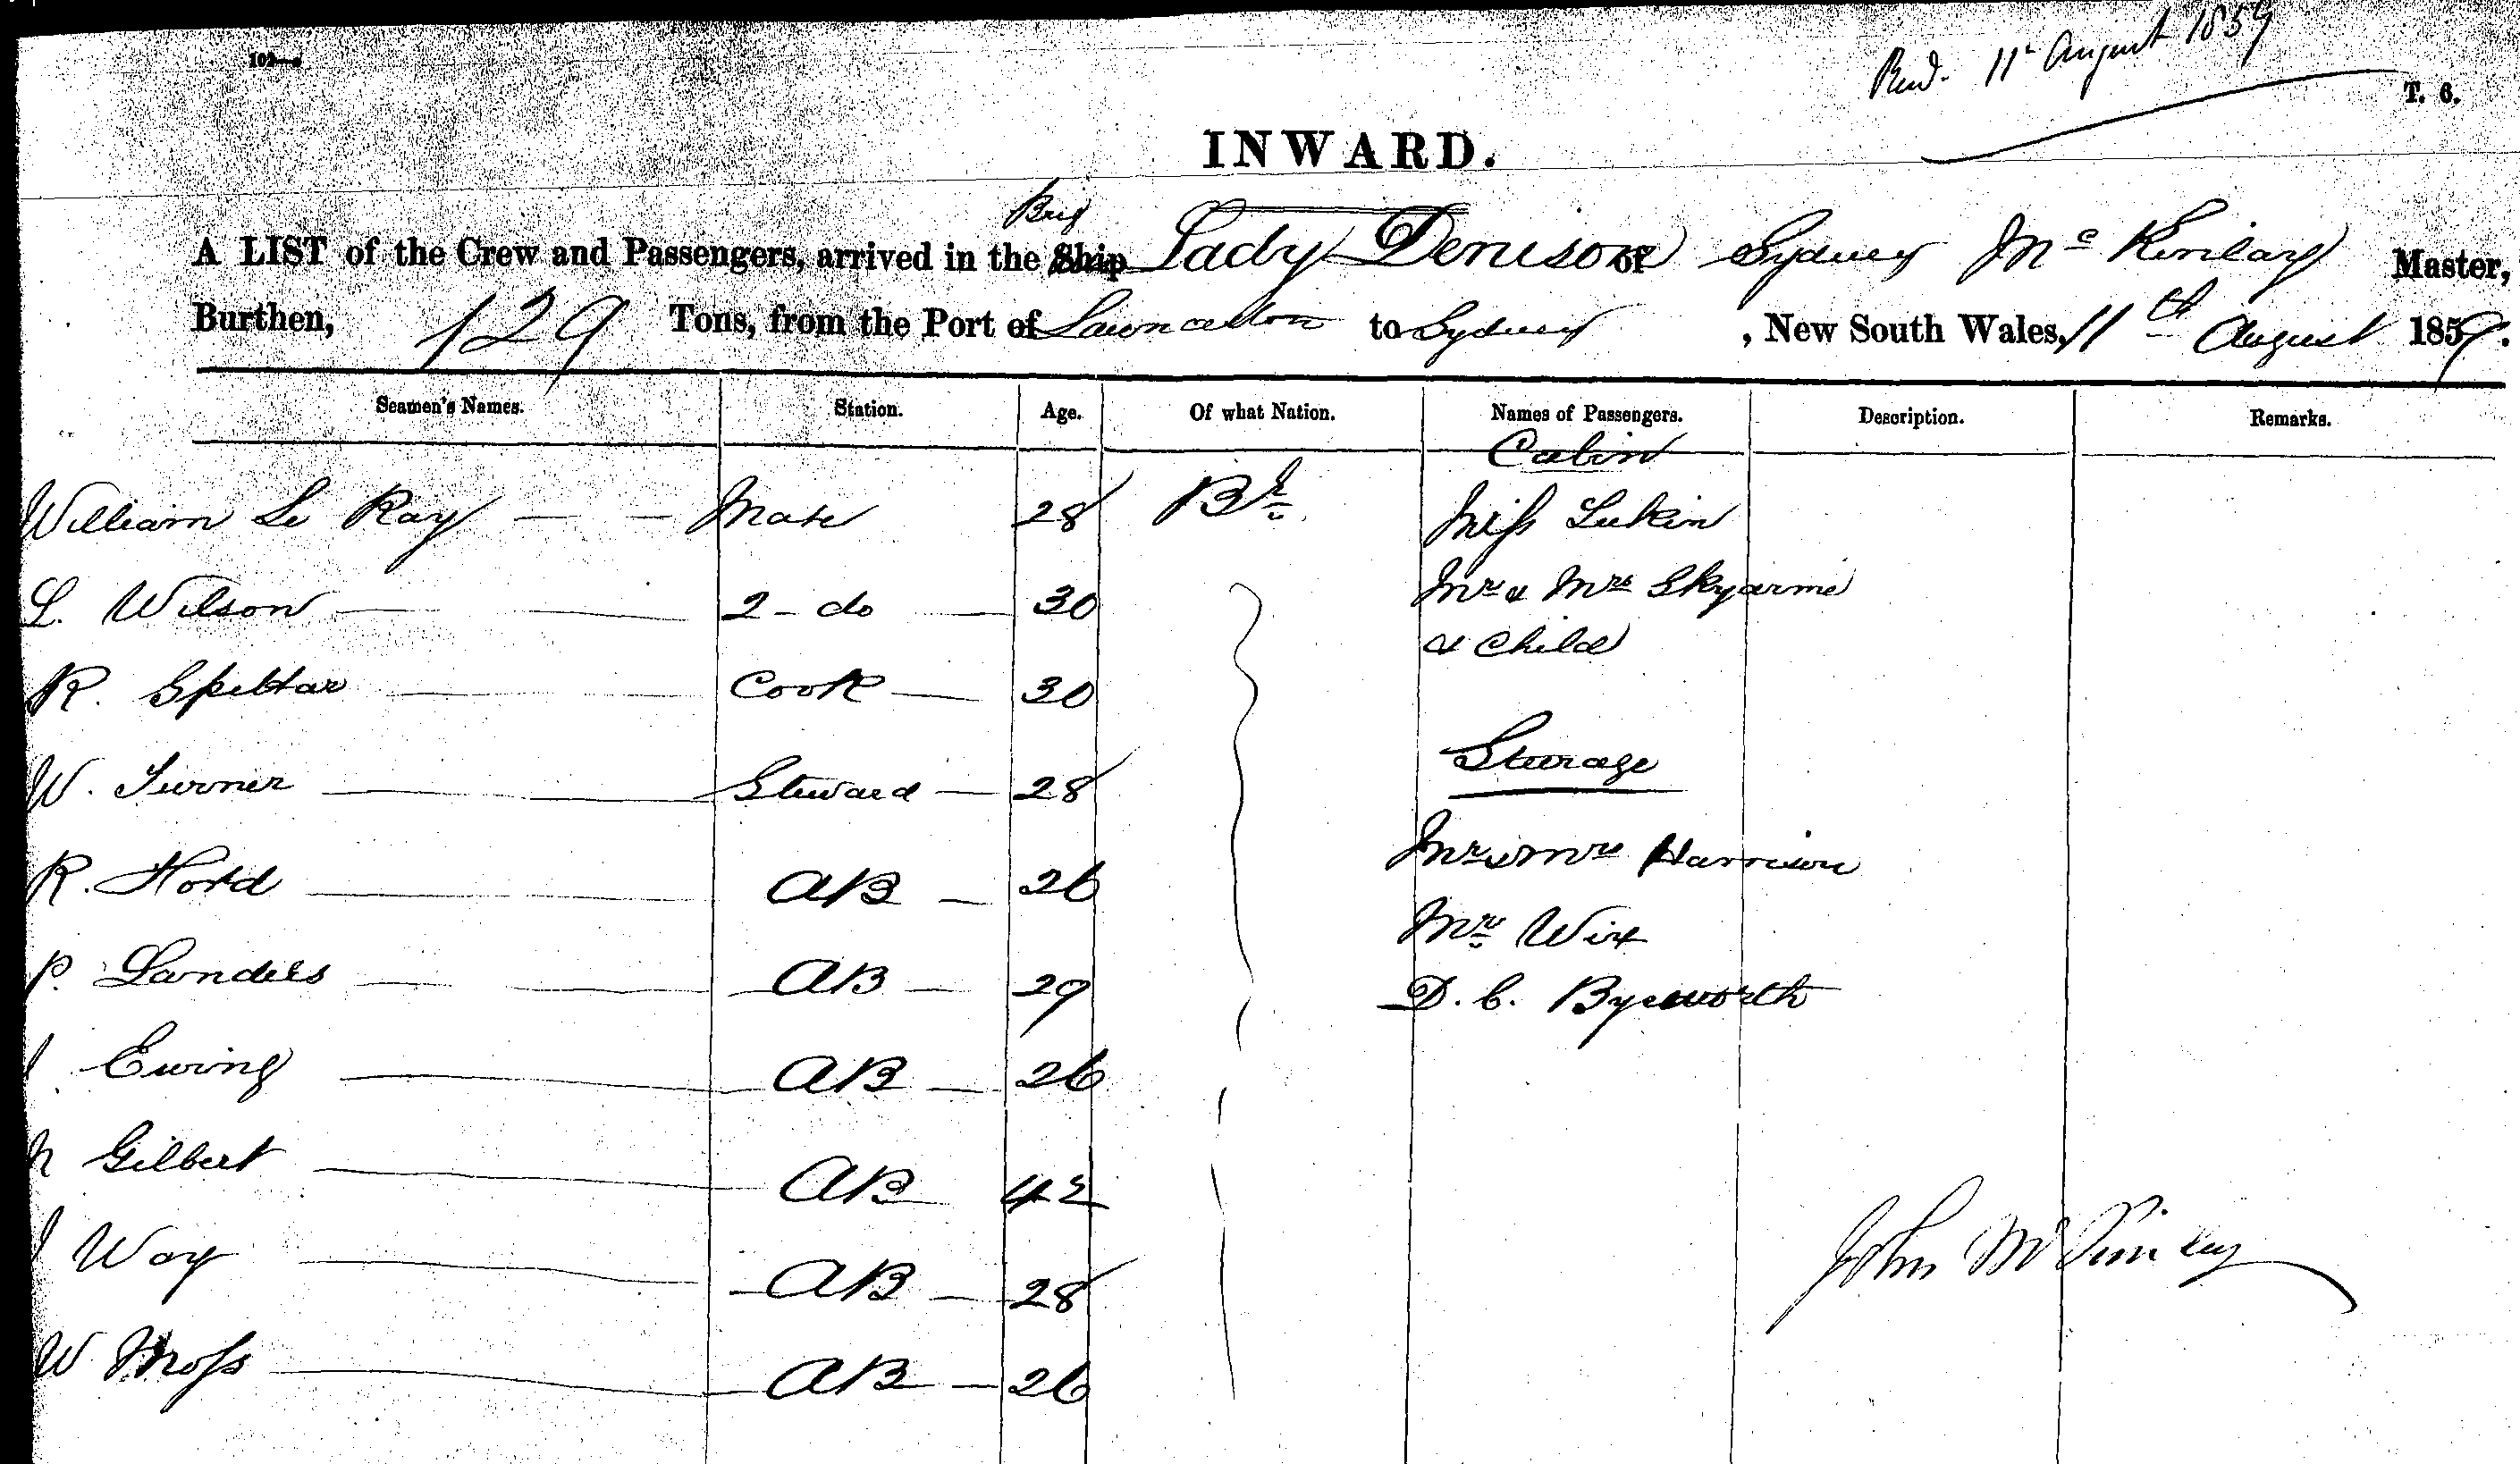 Recd. 11th August 1859
T. 6.
INWARD.
Brig
A LIST of the Crew and Passengers, arrived in the Ship Lady Denison of Sydney Mc Kinlay Master,
Burthen, 129 Tons, from the Port of Launceston to Sydney, New South Wales, 11th August 1859.
Seamen's Names. Station. Age. Of what Nation. Names of Passengers. Description. Remarks.
Cabin
William Le Ray — — Mate 28 Br. Miss Lukin
L. Wilson — 2 - do — 30 Mr & Mrs Skyarme
& Child
R. Spittar — Cook — 30
Steerage
W. Turner — Steward — 28
R. Hord — AB — 26 Mr & Mrs Harrison
Mr Wix
P. Landers — AB — 29 D. C. Byeworth
Ewing — AB — 26
Gilbert — AB 42
Way — AB — 28
John McKinlay
W Moss — AB — 26